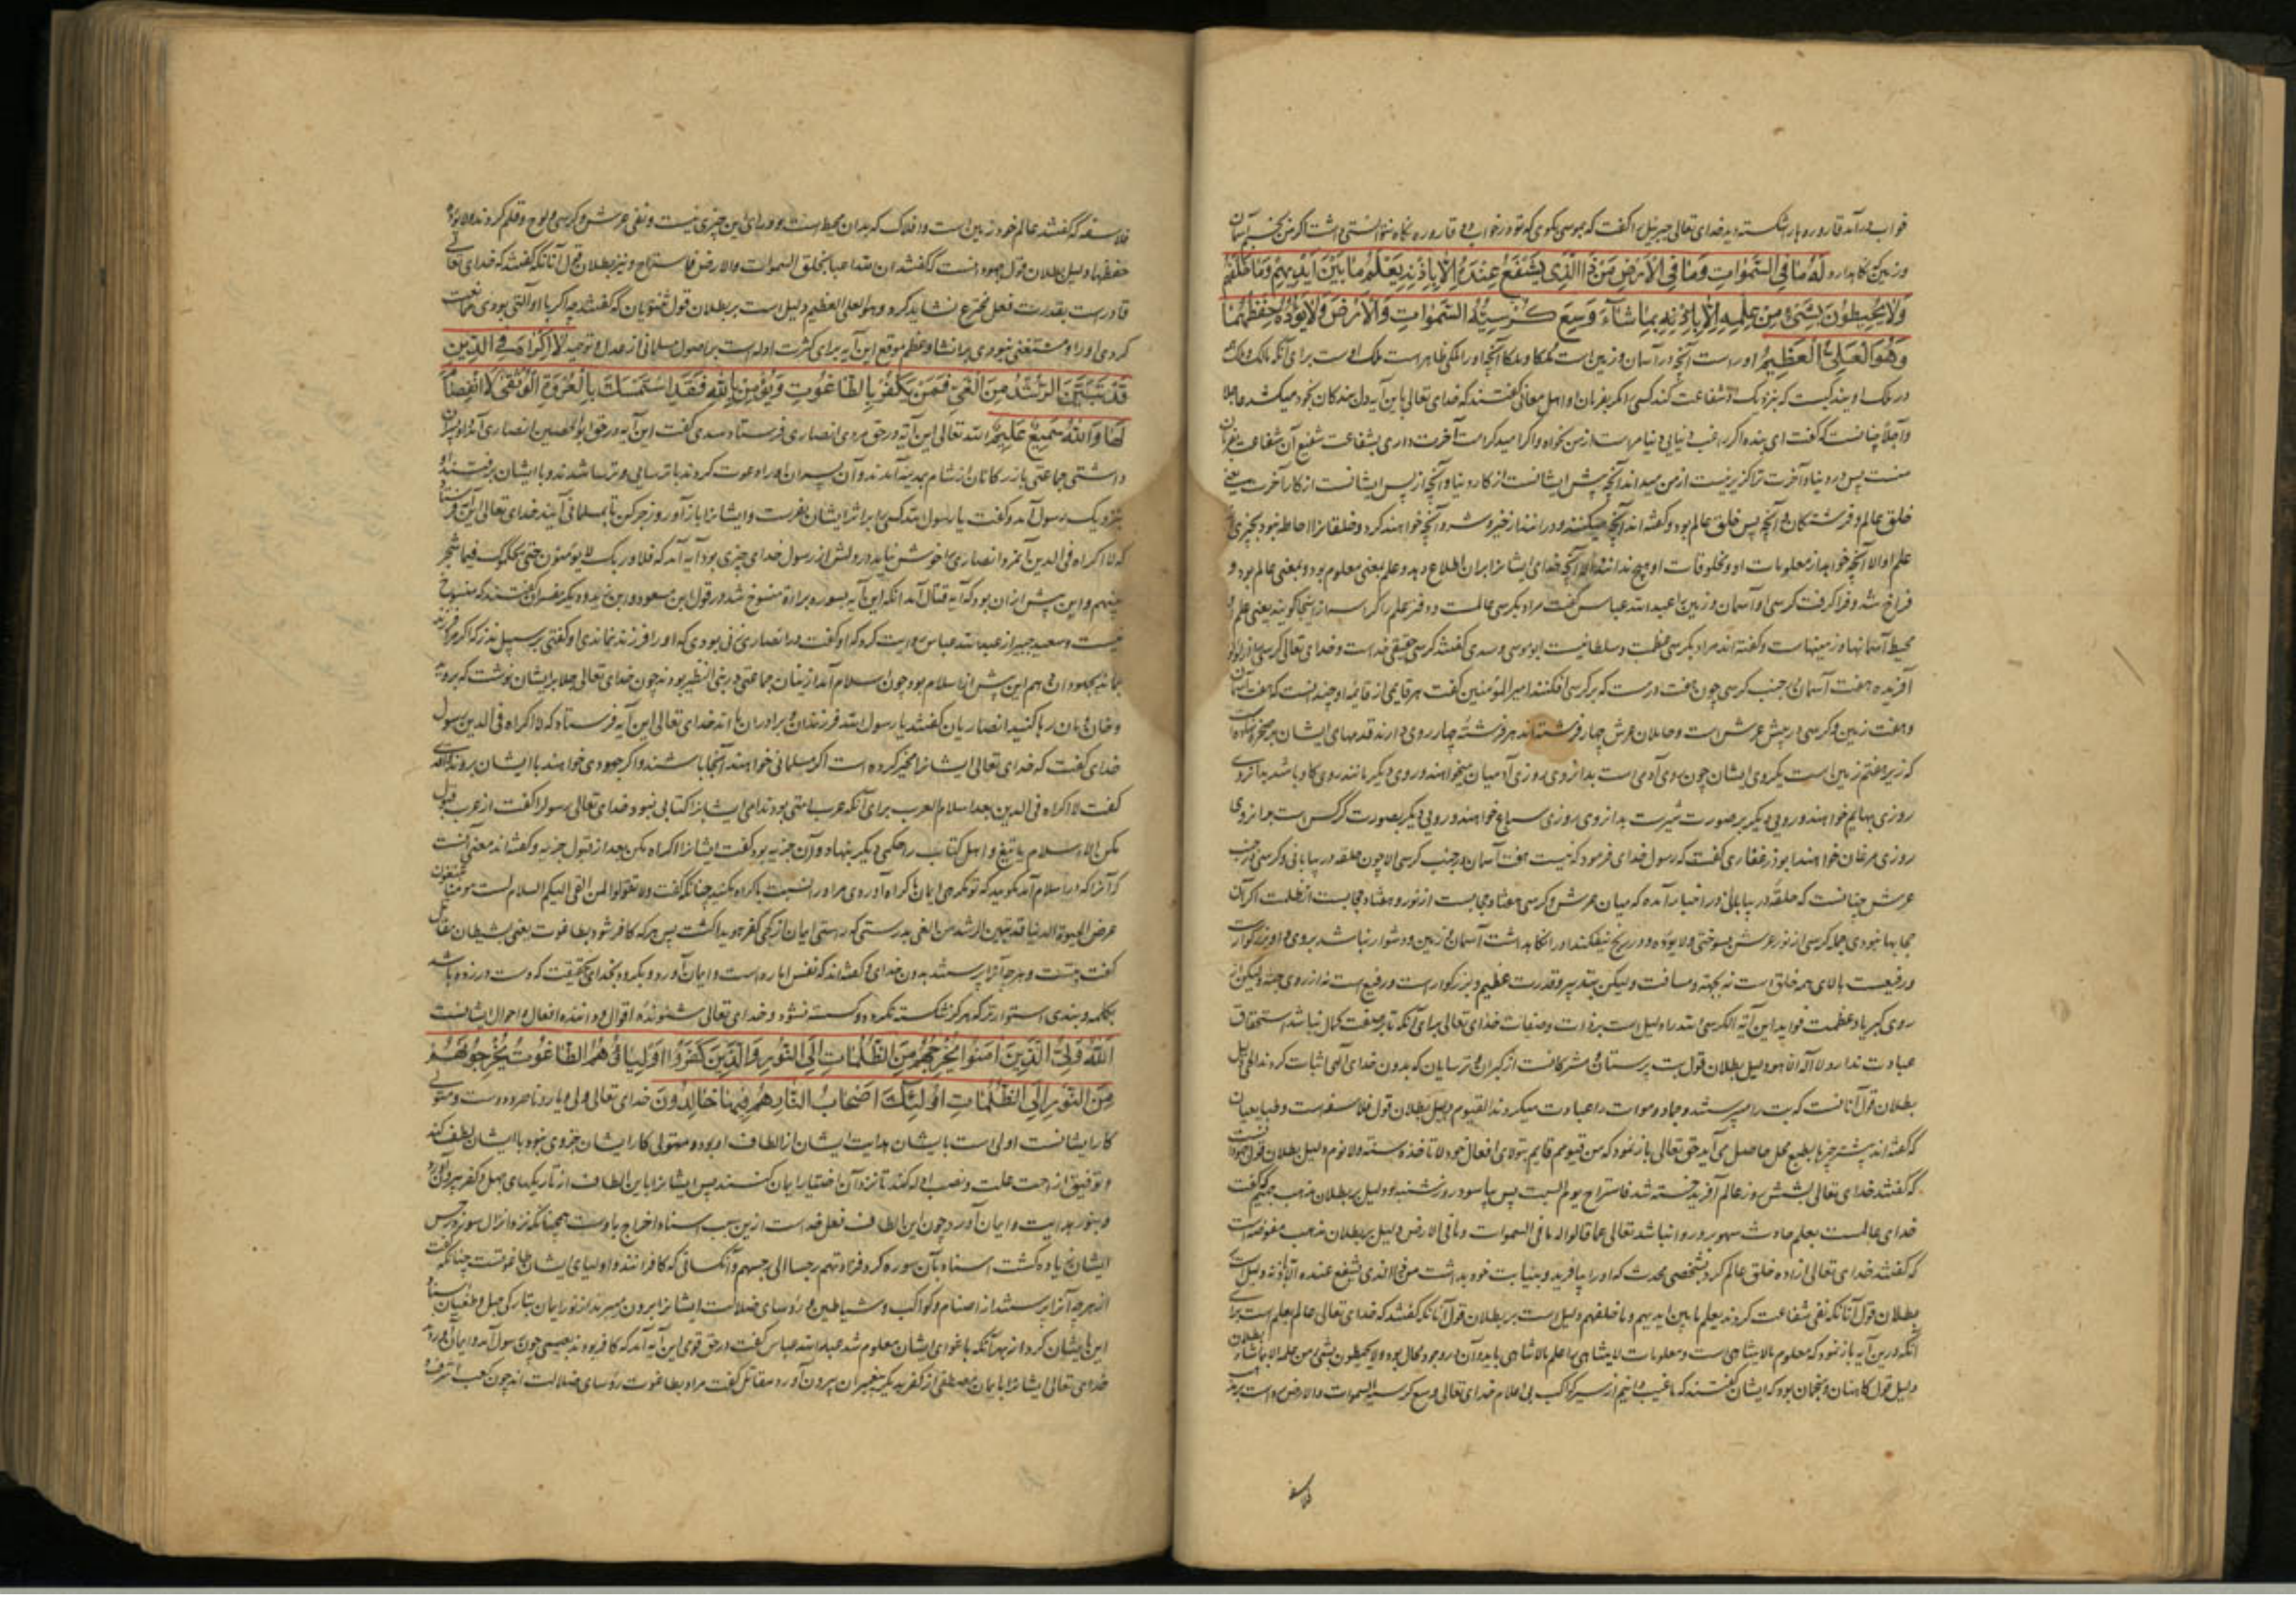 خواب درآمد قاروره‌ها شکسته دید خدای تعالی جبرئیل را گفت که موسی را بگوی که تو در خواب دو قاروره نگاه نتوانستی داشت اگر من بخسبم آسمان
و زمین که نگاه دارد لَهُ مَا فِی السَّمٰوَاتِ وَمَا فِی الْاَرْضِ مَنْ ذَا الَّذِی یَشْفَعُ عِنْدَهُ اِلَّا بِاِذْنِهِ یَعْلَمُ مَا بَیْنَ اَیْدِیهِمْ وَمَا خَلْفَهُمْ
وَلَا یُحِیطُونَ بِشَیْءٍ مِنْ عِلْمِهِ اِلَّا بِمَا شَاءَ وَسِعَ کُرْسِیُّهُ السَّمٰوَاتِ وَالْاَرْضَ وَلَا یَؤُدُهُ حِفْظُهُمَا
وَهُوَ الْعَلِیُّ الْعَظِیمُ او راست آنچه در آسمان و زمین است ملکا و ملکا آنچه او را ملکی ظاهر است ملک اوست برای آنکه مالک و ملک
در ملک اویند کیست که بنزدیک او شفاعت کند کسی را مگر بفرمان او اهل معانی گفتند که خدای تعالی باین آیه دل بندگان بخود میکشد عاجلا
و آجلا چنانست که گفت ای بنده اگر راغب دنیایی دنیا مراست از من بخواه و اگر امید کرامت آخرت داری بشفاعت شفیع آن شفاعت بفرمان
منست پس در دنیا و آخرت ترا گزیر نیست از من میداند آنچه پیش ایشانست از کار دنیا و آنچه از پس ایشانست از کار آخرت یعنی
خلق عالم و فرشتگان و آنچه پس خلق عالم بود و گفته‌اند آنچه میکنند و دانند از خیر و شر و آنچه خواهند کرد و خلقانرا احاطه نبود بچیزی از
علم او الا آنچه خواهد از معلومات او و مخلوقات او هیچ ندانند الا آنچه خدای ایشانرا بران اطلاع دهد و علم بمعنی معلوم بود و بمعنی عالم بود و
فراخ شد و فرا گرفت کرسی او آسمان و زمین را عبدالله عباس گفت مراد بکرسی علمست و دفتر علم را کراسه ازینجا گویند یعنی علم او
محیط آسمانها و زمینهاست و گفته‌اند مراد بکرسی عظمت و سلطانیست ابوموسی و سدی گفتند کرسی حقیقی خداست و خدای تعالی کرسی را از لولو
آفریده هفت آسمان در جنب کرسی چون هفت درمست که بر کرسی افکنند امیرالمؤمنین گفت هر قایمی از قائمه او چندانست که هفت آسمان
و هفت زمین و کرسی در پیش عرش است و حاملان عرش چهار فرشته‌اند هر فرشته چهار روی دارند قدمهای ایشان بر صخره است
که زیر هفتم زمین است یکروی ایشان چون روی آدمی است بدان روی روزی آدمیان میخواهند و روی دیگر مانند روی گاو باشد بدان روی
روزی بهایم خواهند و رویی دیگر بر صورت شیرست بدان روی روزی سباع خواهند و رویی دیگر بصورت کرگس است بدان روی
روزی مرغان خواهند ابوذر غفاری گفت که رسول خدای فرمود که نیست هفت آسمان در جنب کرسی الا چون حلقه در بیابانی و کرسی در جنب
عرش چنانست که حلقه در بیابان و در اخبار آمده که میان عرش و کرسی هفتاد حجابست از نور و هفتاد حجابست از ظلمت اگر آن
حجابها نبودی حمله کرسی از نور عرش بسوختی ولا یؤده و در رنج نیفکند او را نگاه داشت آسمان و زمین و دشوار نباشد بر وی و او بزرگوارست
و رفیعست بالای همه خلق است نه بجهت و مسافت ولیکن بتدبیر و قدرت عظیم و بزرگوارست و رفیع است نه از روی جثه ولیکن از
روی کبریا و عظمت فواید این آیة الکرسی الله را دلیل است بر ذات و صفات خدای تعالی برای آنکه تا بر صفت کمال نباشد استحقاق
عبادت ندارد لا اله الا هو دلیل بطلان قول بت پرستان و مشرکانست از گبران و ترسایان که بدون خدای الهی اثبات کردند الحی دلیل
بطلان قول آنانست که بت را میپرستند و جماد و موات را عبادت میکردند القیوم دلیل بطلان قول فلاسفه است و طبایعیان
که گفته‌اند بیشتر چیزها بطبع محل حاصل می آید حق تعالی باز نمود که من قیومم قایم بتولای افعال خود لا تاخذه سنة ولا نوم دلیل بطلان قول جهودانست
که گفتند خدای تعالی بشش روز عالم آفرید خسته شد فاستراح یوم السبت پس بیاسود روز شنبه و دلیل بر بطلان مذهب جهم که گفت
خدای عالمست بعلم حادث سهو برو روا نباشد تعالی عما قالوا له ما فی السموات وما فی الارض دلیل بر بطلان مذهب مفوضه است
که گفتند خدای تعالی اراده خلق عالم کرد بشخصی محدث که او را بیافرید و بنیابت خود بداشت من ذا الذی یشفع عنده الا باذنه دلیل است
بطلان قول آنانکه نفی شفاعت کردند یعلم ما بین ایدیهم وما خلفهم دلیل است بر بطلان قول آنانکه گفتند که خدای تعالی عالم بعلم است برای
آنکه درین آیه باز نمود که معلوم ما لا یتناهی است و معلومات لا یتناهی را علم ما لا یتناهی باید و آن در وجود محال بود ولا یحیطون بشیء من علمه الا بما شاء بطلان
دلیل قول کاهنان و منجمان بود که ایشان گفتند که ما غیب دانیم از سیر کواکب بی اعلام خدای تعالی وسع کرسیه السموات والارض رد است بر
فلاسفه
فلاسفه که گفتند عالم خود زمین است و افلاک که بدان محیط است و ورای این چیزی نیست و نفی عرش و کرسی و لوح و قلم کردند ولا یؤده
حفظهما دلیل بطلان قول جهود است که گفتند ان الله اعیا بخلق السموات والارض فاستراح و نیز بطلان قول آنانکه گفتند که خدای تعالی
قادرست بقدرت فعل مخترع نشاید کرد و هو العلی العظیم دلیل است بر بطلان قول ثنویان که گفتند چه اگر با او آلتی بودی ممانعت
کردی او را و مستغنی نبودی برانشا و عظم موقع این آیه برای کثرت ادله است بر اصول مسلمانی از عدل و توحید لَا اِکْرَاهَ فِی الدِّینِ
قَدْ تَبَیَّنَ الرُّشْدُ مِنَ الْغَیِّ فَمَنْ یَکْفُرْ بِالطَّاغُوتِ وَیُؤْمِنْ بِاللّٰهِ فَقَدِ اسْتَمْسَکَ بِالْعُرْوَةِ الْوُثْقٰی لَا انْفِصَامَ
لَهَا وَاللّٰهُ سَمِیعٌ عَلِیمٌ الله تعالی این آیه در حق مردی انصاری فرستاد سدی گفت این آیه در حق ابوالحصین انصاری آمد او دو پسران
داشتی جماعتی بازرگانان از شام بمدینه آمدند و آن پسران او را دعوت کردند با ترسایی و ترسا شدند و با ایشان برفتند او
بنزدیک رسول آمد و گفت یا رسول الله کسی را بر اثر ایشان بفرست و ایشانرا باز آور و زجر کن تا بمسلمانی آیند خدای تعالی این آیه فرستاد
که لا اکراه فی الدین آنمرد انصاری را خوش نیامد در دلش از رسول خدای چیزی بود آیه آمد که فلا وربک لا یؤمنون حتی یحکموک فیما شجر
بینهم و این پیش ازان بود که آیه قتال آمد آنکه این آیه بسوره براءة منسوخ شد در قول ابن مسعود و ابن زید و دیگر مفسران گفتند که منسوخ
نیست و سعید جبیر از عبدالله عباس روایت کرد که او گفت در انصاری زنی بودی که او را فرزند نماندی او گفتی بر سبیل نذر که اگر مرا فرزند
بماند بجهودان دهم این پیش از اسلام بود چون اسلام آمد ازینان جماعتی در بنی النضیر بودند چون خدای تعالی جلا بر ایشان نوشت که بروید
و خان و مان رها کنید انصاریان گفتند یا رسول الله فرزندان و برادران مااند خدای تعالی این آیه فرستاد که لا اکراه فی الدین رسول
خدای گفت که خدای تعالی ایشانرا مخیر کرده است اگر مسلمانی خواهند اینجا باشند و اگر جهودی خواهند با ایشان بروند
گفت لا اکراه فی الدین بعد اسلام العرب برای آنکه عرب امتی بودند امی ایشانرا کتابی نبود خدای تعالی رسولرا گفت از عرب قبول
مکن الا اسلام یا تیغ و اهل کتاب را حکمی دیگر بنهاد و آن جزیه بود گفت ایشانرا اکراه مکن بعد از قبول جزیه و گفته‌اند معنی آنست
که آنرا که در اسلام آمد مگویید که تو بکره ایمان باکراه آوردی مر او را نسبت باکراه مکنید چنانکه گفت ولا تقولوا لمن القی الیکم السلام لست مؤمنا تبتغون
عرض الحیوة الدنیا قد تبین الرشد من الغی بدرستی که راستی ایمان از کجی کفر هویدا گشت پس هر که کافر شود بطاغوت یعنی بشیطان مقاتل
گفت بتست و هرچه آنرا پرستند بدون خدای و گفته‌اند که نفس اماره است و ایمان آورد و بگرود بخدای بحقیقت که دست در زده باشد
بکلمه و بندی استوارتر که هرگز شکسته نگردد و گسسته نشود و خدای تعالی شنونده اقوال و داننده افعال و احوال ایشانست
اَللّٰهُ وَلِیُّ الَّذِینَ اٰمَنُوا یُخْرِجُهُمْ مِنَ الظُّلُمَاتِ اِلَی النُّورِ وَالَّذِینَ کَفَرُوا اَوْلِیَاؤُهُمُ الطَّاغُوتُ یُخْرِجُونَهُمْ
مِنَ النُّورِ اِلَی الظُّلُمَاتِ اُولٰئِکَ اَصْحَابُ النَّارِ هُمْ فِیهَا خَالِدُونَ خدای تعالی ولی و یار و ناصر و دوست و متولی
کار ایشانست اولی است بایشان هدایت ایشان از الطاف او بود و متولی کار ایشان جز وی نبود با ایشان لطف کند
و توفیق و ازاحت علت و نصب ادله کند تا نزد آن اختیار ایمان کنند پس ایشانرا باین الطاف از تاریکیهای جهل و کفر بیرون آورد
و بنور هدایت و ایمان آورد و چون این الطاف فعل خداست ازین سبب اسناد اخراج باوست همچنانکه نزد انزال سوره رجس
ایشان زیاده گشت اسناد بآن سوره کرد فزادتهم رجسا الی رجسهم و آنکسانی که کافرانند و اولیای ایشان طاغوتست چنانکه گفت
از هرچه آنرا پرستند از اصنام و کواکب و شیاطین و رؤسای ضلالت ایشانرا بیرون میبرند از نور ایمان بتاریکی جهل و طغیان اسناد
این بایشان کرد از بهر آنکه باغوای ایشان معلوم شد عبدالله عباس گفت در حق قومی این آیه آمد که کافر بودند بعیسی چون رسول آمد و ایمان آوردند
خدای تعالی ایشانرا بایمان مصطفی از کفر بدیگر پیغمبران بیرون آورد مقاتل گفت مراد بطاغوت رؤسای ضلالت‌اند چون کعب اشرف و